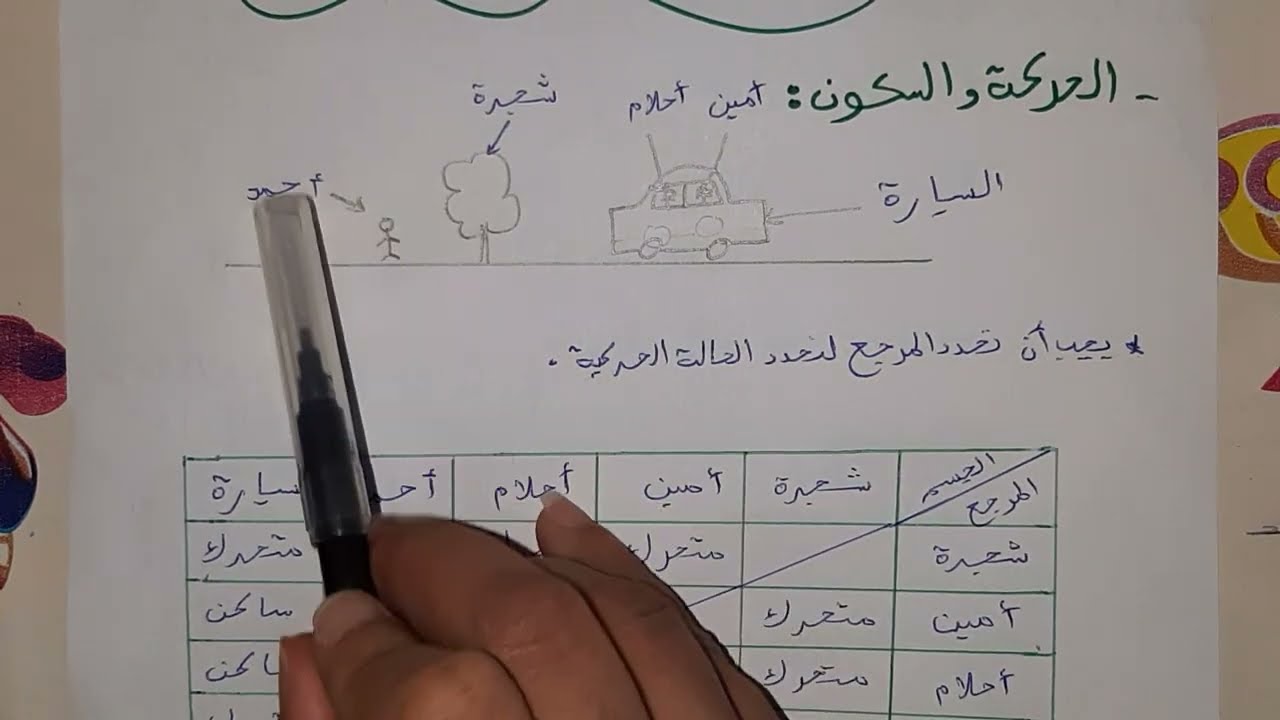 - الحركة والسكون:
أمين أحلام
شجرة
السيارة
أحمد
* يجب أن نحدد المرجع لنحدد الحالة الحركية.
الجسم المرجع شجرة أمين أحلام سيارة
شجرة متحرك متحرك
أمين متحرك ساكن
أحلام متحرك